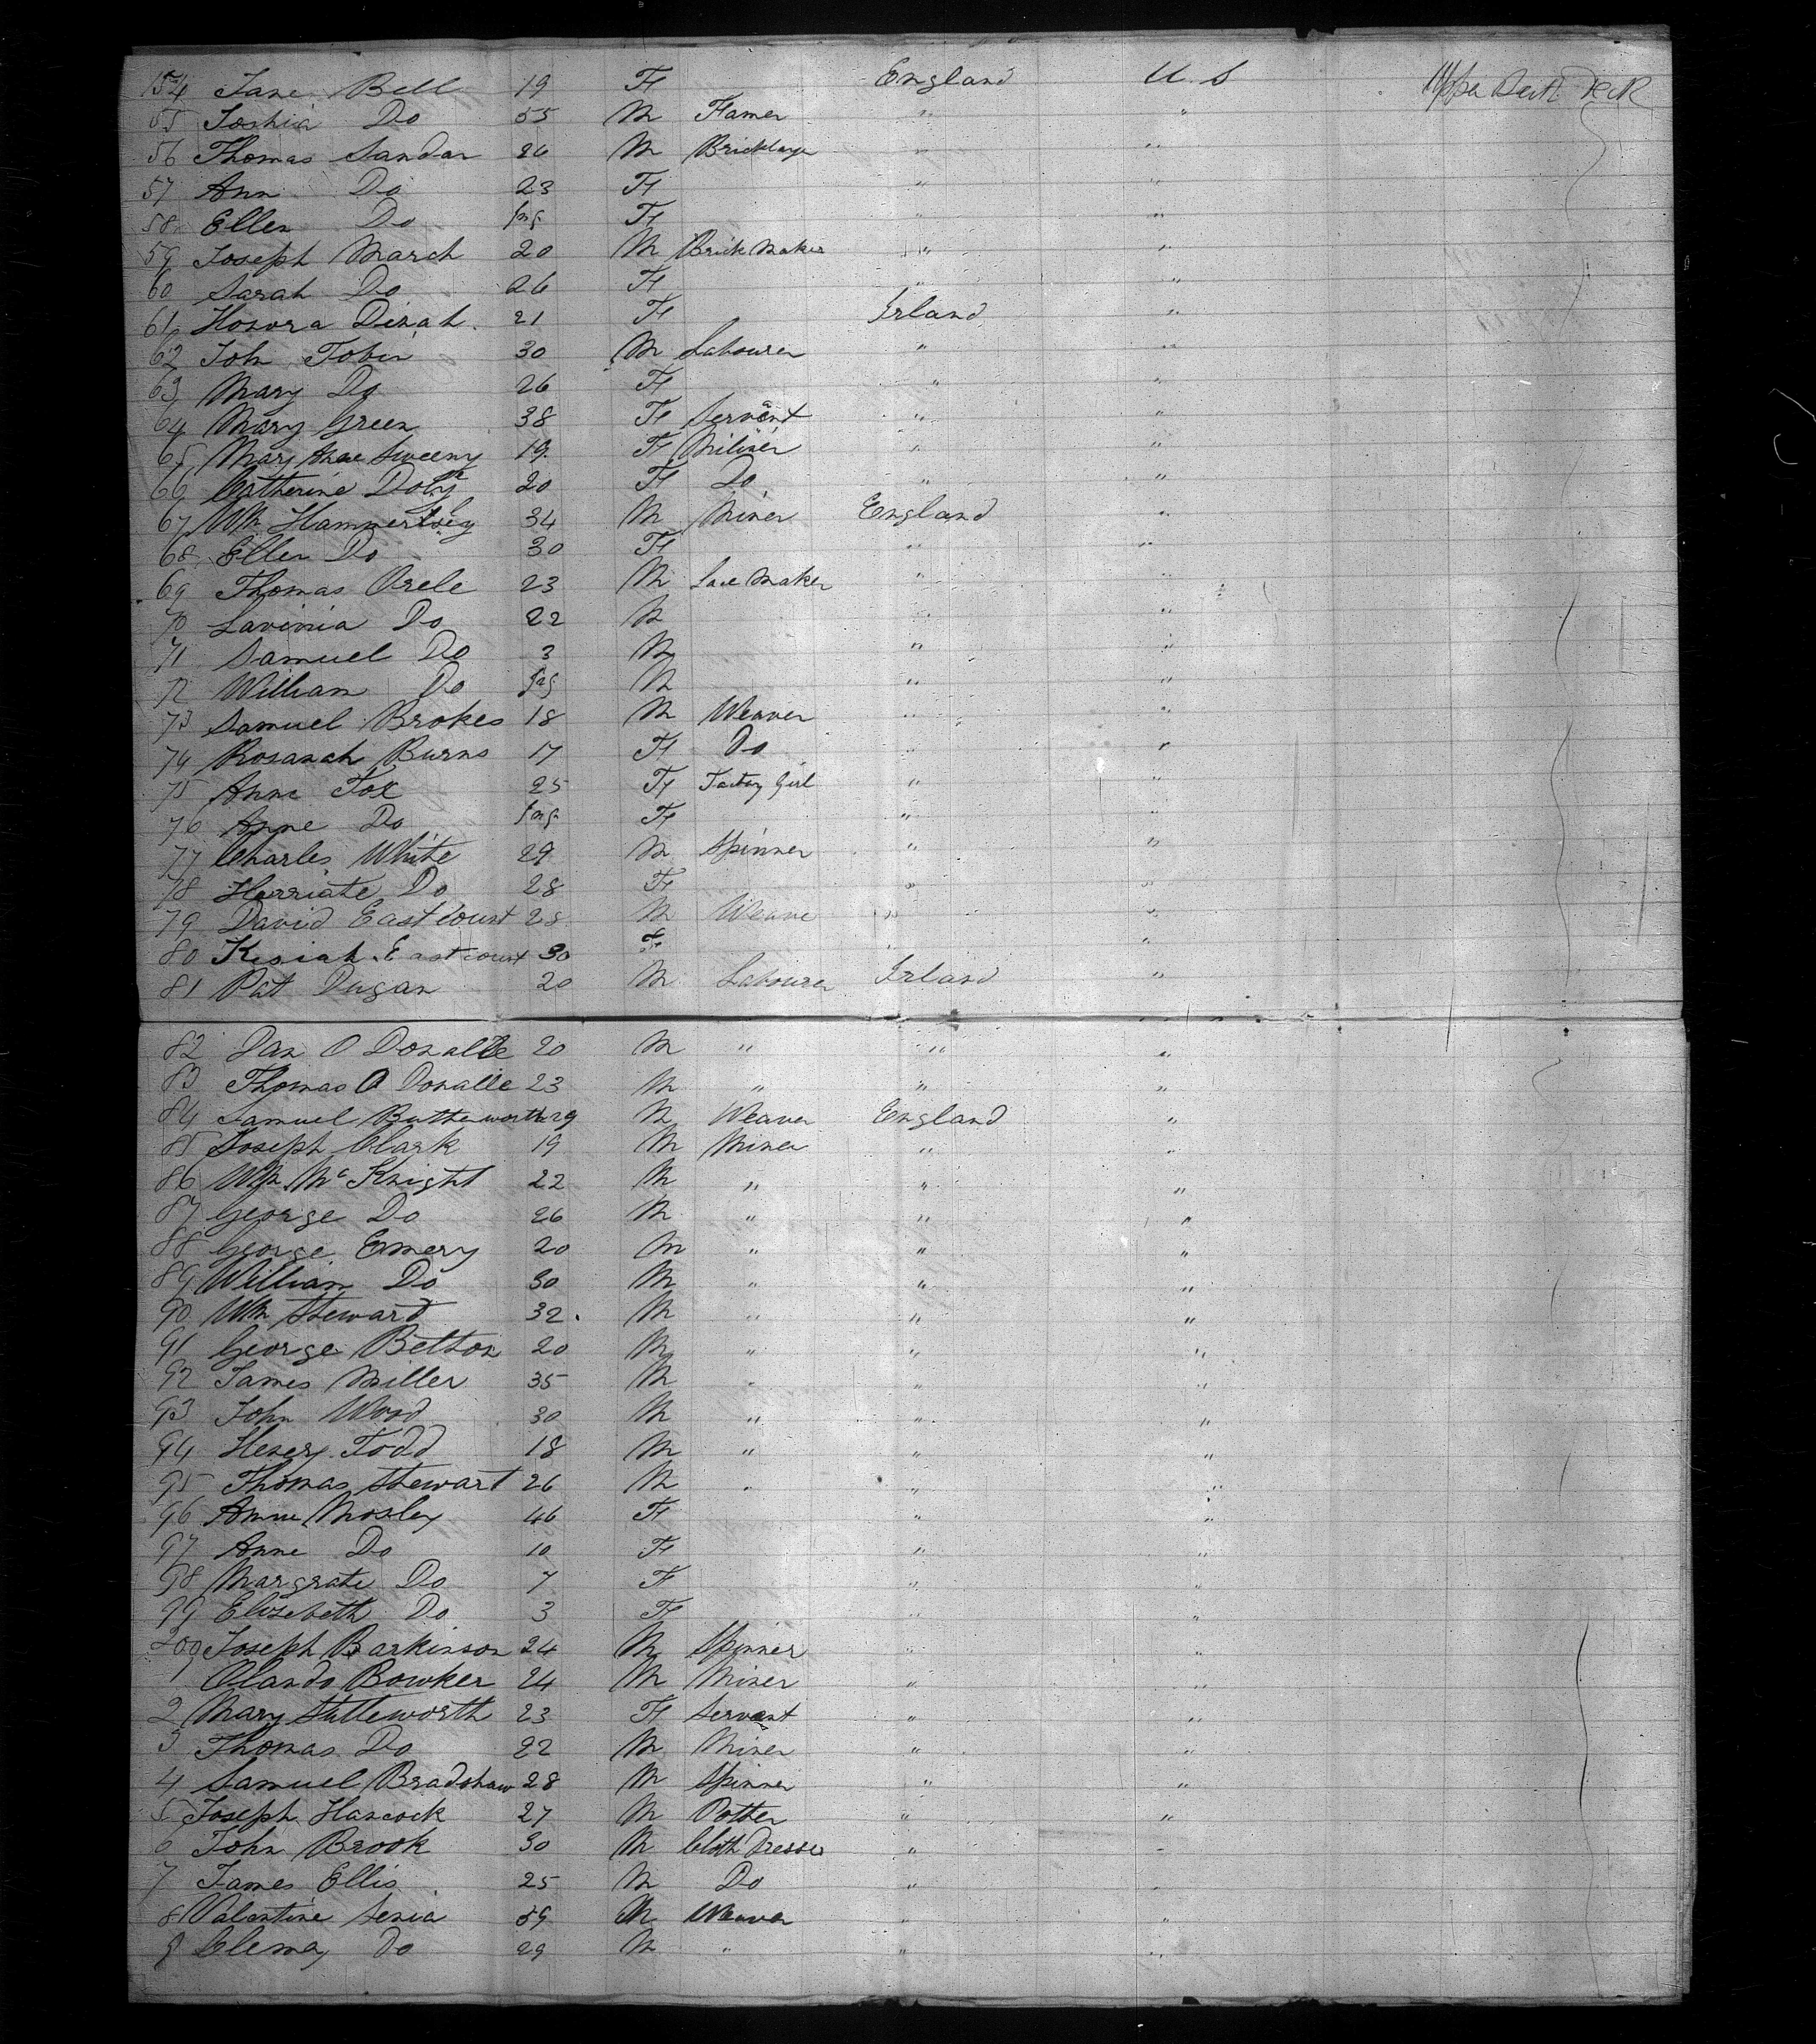 154 Jane Bell 19 F England U. S Upper Deck
55 Joshia Do 55 M Famer " "
56 Thomas Sandar 26 M Bricklayer " "
57 Ann Do 23 F " "
58 Ellen Do Inf F " "
59 Joseph March 20 M Brick Maker " "
60 Sarah Do 26 F " "
61 Honora Dinah 21 F Irland "
62 John Tobin 30 M Labourer " "
63 Mary Do 26 F " "
64 Mary Green 38 F Servant " "
65 Mary Anne Sweeny 19 F Miliner " "
66 Catherine 20 F Do " "
67 Wm 34 M Miner England "
68 Ellen Do 30 F " "
69 Thomas Orele 23 M Lace Maker " "
70 Lavinia Do 22 M " "
71 Samuel Do 3 M " "
72 William Do Inf M " "
73 Samuel Brokes 18 M Weaver " "
74 Rosanah Burns 17 F Do " "
75 Anne Fox 25 F Factory Girl " "
76 Anne Do Inf F " "
77 Charles White 29 M Spinner " "
78 Harriate Do 28 F " "
79 David Eastcourt 28 M Weave " "
80 Kesiah Eastcourt 30 F " "
81 Pat Dugan 20 M Labourer Irland "
82 Dan O Donalle 20 M " " "
83 Thomas O Donalle 23 M " " "
84 Samuel Butterworth 29 M Weaver England "
85 Joseph Clark 19 M Miner " "
86 Wm McKnight 22 M " " "
87 George Do 26 M " " "
88 George Emery 20 M " " "
89 William Do 30 M " " "
90 Wm Steward 32 M " " "
91 George Betton 20 M " " "
92 James Miller 35 M " " "
93 John Wood 30 M " " "
94 Henery Todd 18 M " " "
95 Thomas Stewart 26 M " " "
96 Annie Mosley 46 F " "
97 Anne Do 10 F " "
98 Margrate Do 7 F " "
99 Elizebeth Do 3 F " "
200 Joseph Barkinson 24 M Spinner " "
1 Olando Bowker 24 M Miner " "
2 Mary Stutleworth 23 F Servant " "
3 Thomas Do 22 M Miner " "
4 Samuel Bradshaw 28 M Spinner " "
5 Joseph Hancock 27 M Potter " "
6 John Brook 30 M Cloth Dresser " "
7 James Ellis 25 M Do " "
8 Valentine Senia 59 M Weaver " "
9 Clema Do 29 M " " "